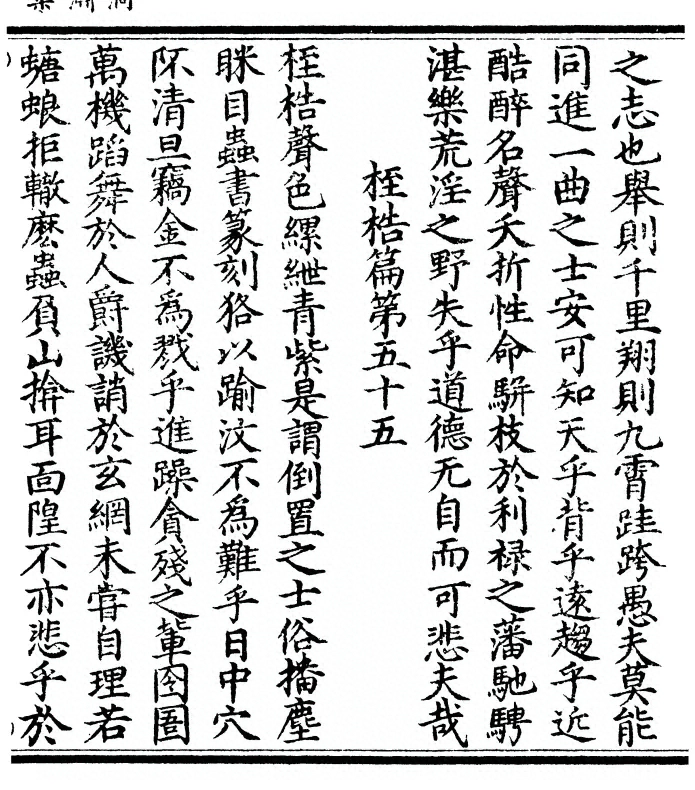 之志也舉則千里翔則九霄跬跨愚夫莫能
同進一曲之士安可知天乎背乎遠趨乎近
酷醉名聲夭折性命駢枝於利禄之藩馳騁
湛樂荒淫之野失乎道德无自而可悲夫哉
桎梏篇第五十五
桎梏聲色縲紲青紫是謂倒置之士俗播塵
眯目蟲書篆刻狢以踰汶不爲難乎日中穴
阫清旦竊金不爲戮乎進躁貪殘之輩囹圄
萬機蹈舞於人爵譏誚於玄網未嘗自理若
螗蜋拒轍麽蟲負山揜耳面隍不亦悲乎於